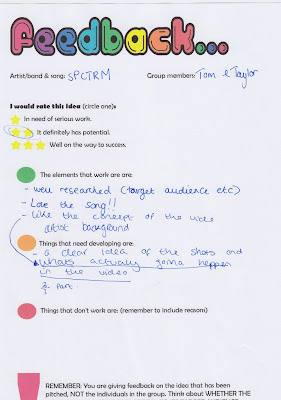 feedback...
Artist/band & song: SPCTRM Group members: Tom & Taylor
I would rate this idea (circle one):
In need of serious work.
It definitely has potential.
Well on the way to success.
The elements that work are are:
- well researched (target audience etc)
- Love the song!!
- Like the concept of the
artist background
Things that need developing are:
- a clear idea of the shots and
whats actually gonna happen
in the video
Part
Things that don't work are: (remember to include reasons)
REMEMBER: You are giving feedback on the idea that has been
pitched, NOT the individuals in the group. Think about WHETHER THE